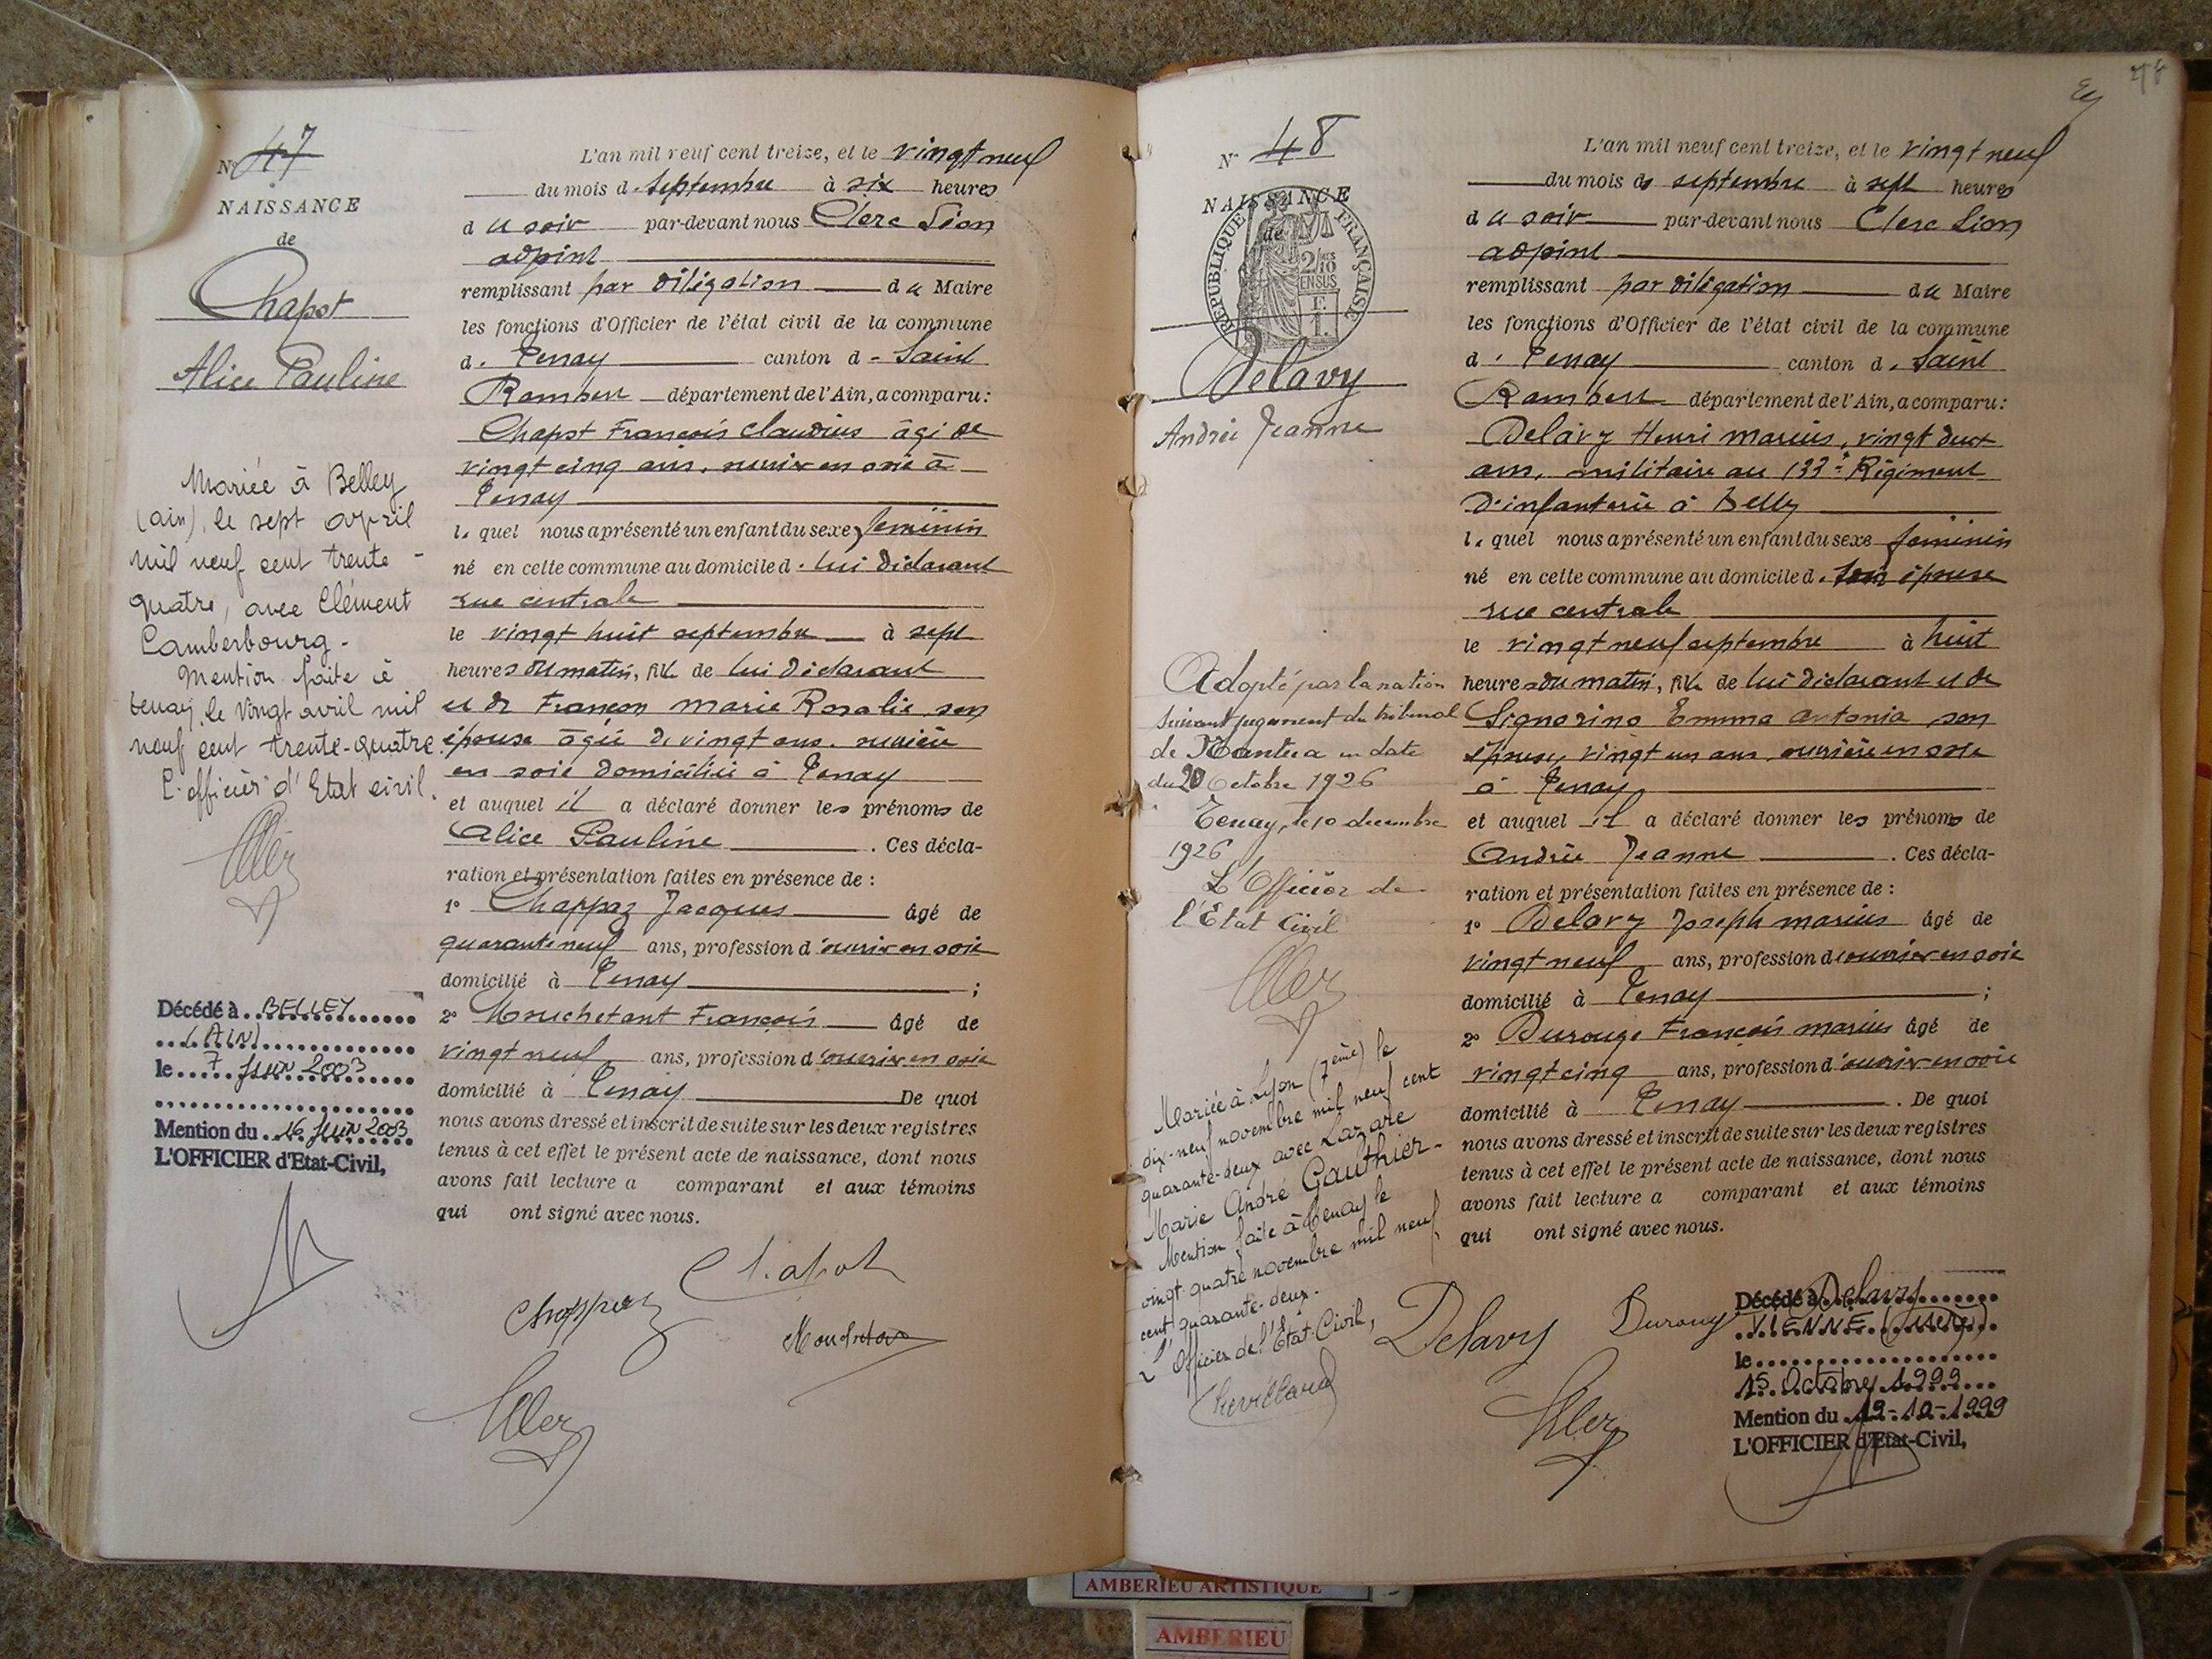 N° 47
NAISSANCE
de
Chapot
Alice Pauline
Mariée à Belley
(ain), le sept avril
mil neuf cent trente-
quatre, avec Clément
Camberbourg.
Mention faite à
Tenay, le vingt avril mil
neuf cent trente-quatre.
L'officier d'Etat civil.
Décédé à BELLEY
(AIN)
le 7 Juin 2003
Mention du 16 Juin 2003
L'OFFICIER d'Etat-Civil,
L'an mil neuf cent treize, et le vingt neuf
du mois de septembre à six heures
du soir par-devant nous Clerc Léon
adjoint
remplissant par délégation du Maire
les fonctions d'Officier de l'état civil de la commune
de Tenay canton de Saint
Rambert département de l'Ain, a comparu:
Chapot François Claudius âgé de
vingt cinq ans, ouvrier en soie à
Tenay
lequel nous a présenté un enfant du sexe féminin
né en cette commune au domicile de lui déclarant
rue centrale
le vingt huit septembre à sept
heures du matin, fille de lui déclarant
et de Françon Marie Rosalie, son
épouse âgée de vingt ans, ouvrière
en soie domiciliée à Tenay
et auquel il a déclaré donner les prénoms de
Alice Pauline. Ces décla-
ration et présentation faites en présence de :
1° Chappaz Jacques âgé de
quarante neuf ans, profession d'ouvrier en soie
domicilié à Tenay ;
2° Mouchetant François âgé de
vingt neuf ans, profession d'ouvrier en soie
domicilié à Tenay De quoi
nous avons dressé et inscrit de suite sur les deux registres
tenus à cet effet le présent acte de naissance, dont nous
avons fait lecture a comparant et aux témoins
qui ont signé avec nous.
Chapot
Chappaz
N° 48
NAISSANCE
de
RÉPUBLIQUE FRANÇAISE
2/10 EN SUS
1 F.
Delavy
Andrée Jeanne
Adopté par la nation
suivant jugement du tribunal
de Nantua en date
du 20 Octobre 1926
Tenay, le 10 decembre
1926
L'Officier de
l'Etat Civil
Mariée à Lyon (7ème) le
dix-neuf novembre mil neuf cent
quarante-deux avec Lazare
Marie André Gauthier-
Mention faite à Tenay le
vingt-quatre novembre mil neuf
cent quarante-deux.
L'Officier de l'Etat-Civil,
L'an mil neuf cent treize, et le vingt neuf
du mois de septembre à sept heures
du soir par-devant nous Clerc Léon
adjoint
remplissant par délégation du Maire
les fonctions d'Officier de l'état civil de la commune
de Tenay canton de Saint
Rambert département de l'Ain, a comparu:
Delavy Henri Marius, vingt deux
ans, militaire au 133e Régiment
d'infanterie à Belley
lequel nous a présenté un enfant du sexe féminin
né en cette commune au domicile de son épouse
rue centrale
le vingt neuf septembre à huit
heures du matin, fille de lui déclarant et de
Signorino Emma Antonia, son
épouse, vingt un ans, ouvrière en soie
à Tenay
et auquel il a déclaré donner les prénoms de
Andrée Jeanne. Ces décla-
ration et présentation faites en présence de :
1° Delavy Joseph Marius âgé de
vingt neuf ans, profession d'ouvrier en soie
domicilié à Tenay ;
2° Durouge François Marius âgé de
vingt cinq ans, profession d'ouvrier en soie
domicilié à Tenay. De quoi
nous avons dressé et inscrit de suite sur les deux registres
tenus à cet effet le présent acte de naissance, dont nous
avons fait lecture a comparant et aux témoins
qui ont signé avec nous.
Delavy
Delavy
Décédé à
VIENNE (Isère)
le
15 Octobre 1999
Mention du 19-10-1999
L'OFFICIER d'Etat-Civil,
AMBERIEU ARTISTIQUE
AMBERIEU